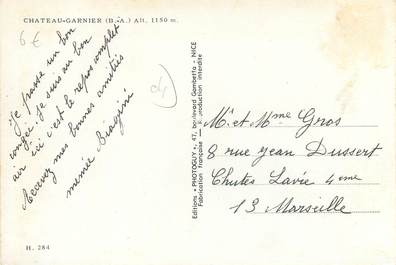 CHATEAU-GARNIER (B.-A.) Alt. 1150 m.
6€
Je passe un bon
congé. Je suis au bon
air ici c'est le repos complet
Recevez mes bonnes amitiés
Biaggini
04
Editions "PHOTOGUY", 47, boulevard Gambetta - NICE
Fabrication française - Reproduction interdite
Mr et Mme Gros
8 rue Jean Dussert
Chutes Lavie 4eme
13 Marseille
H. 284